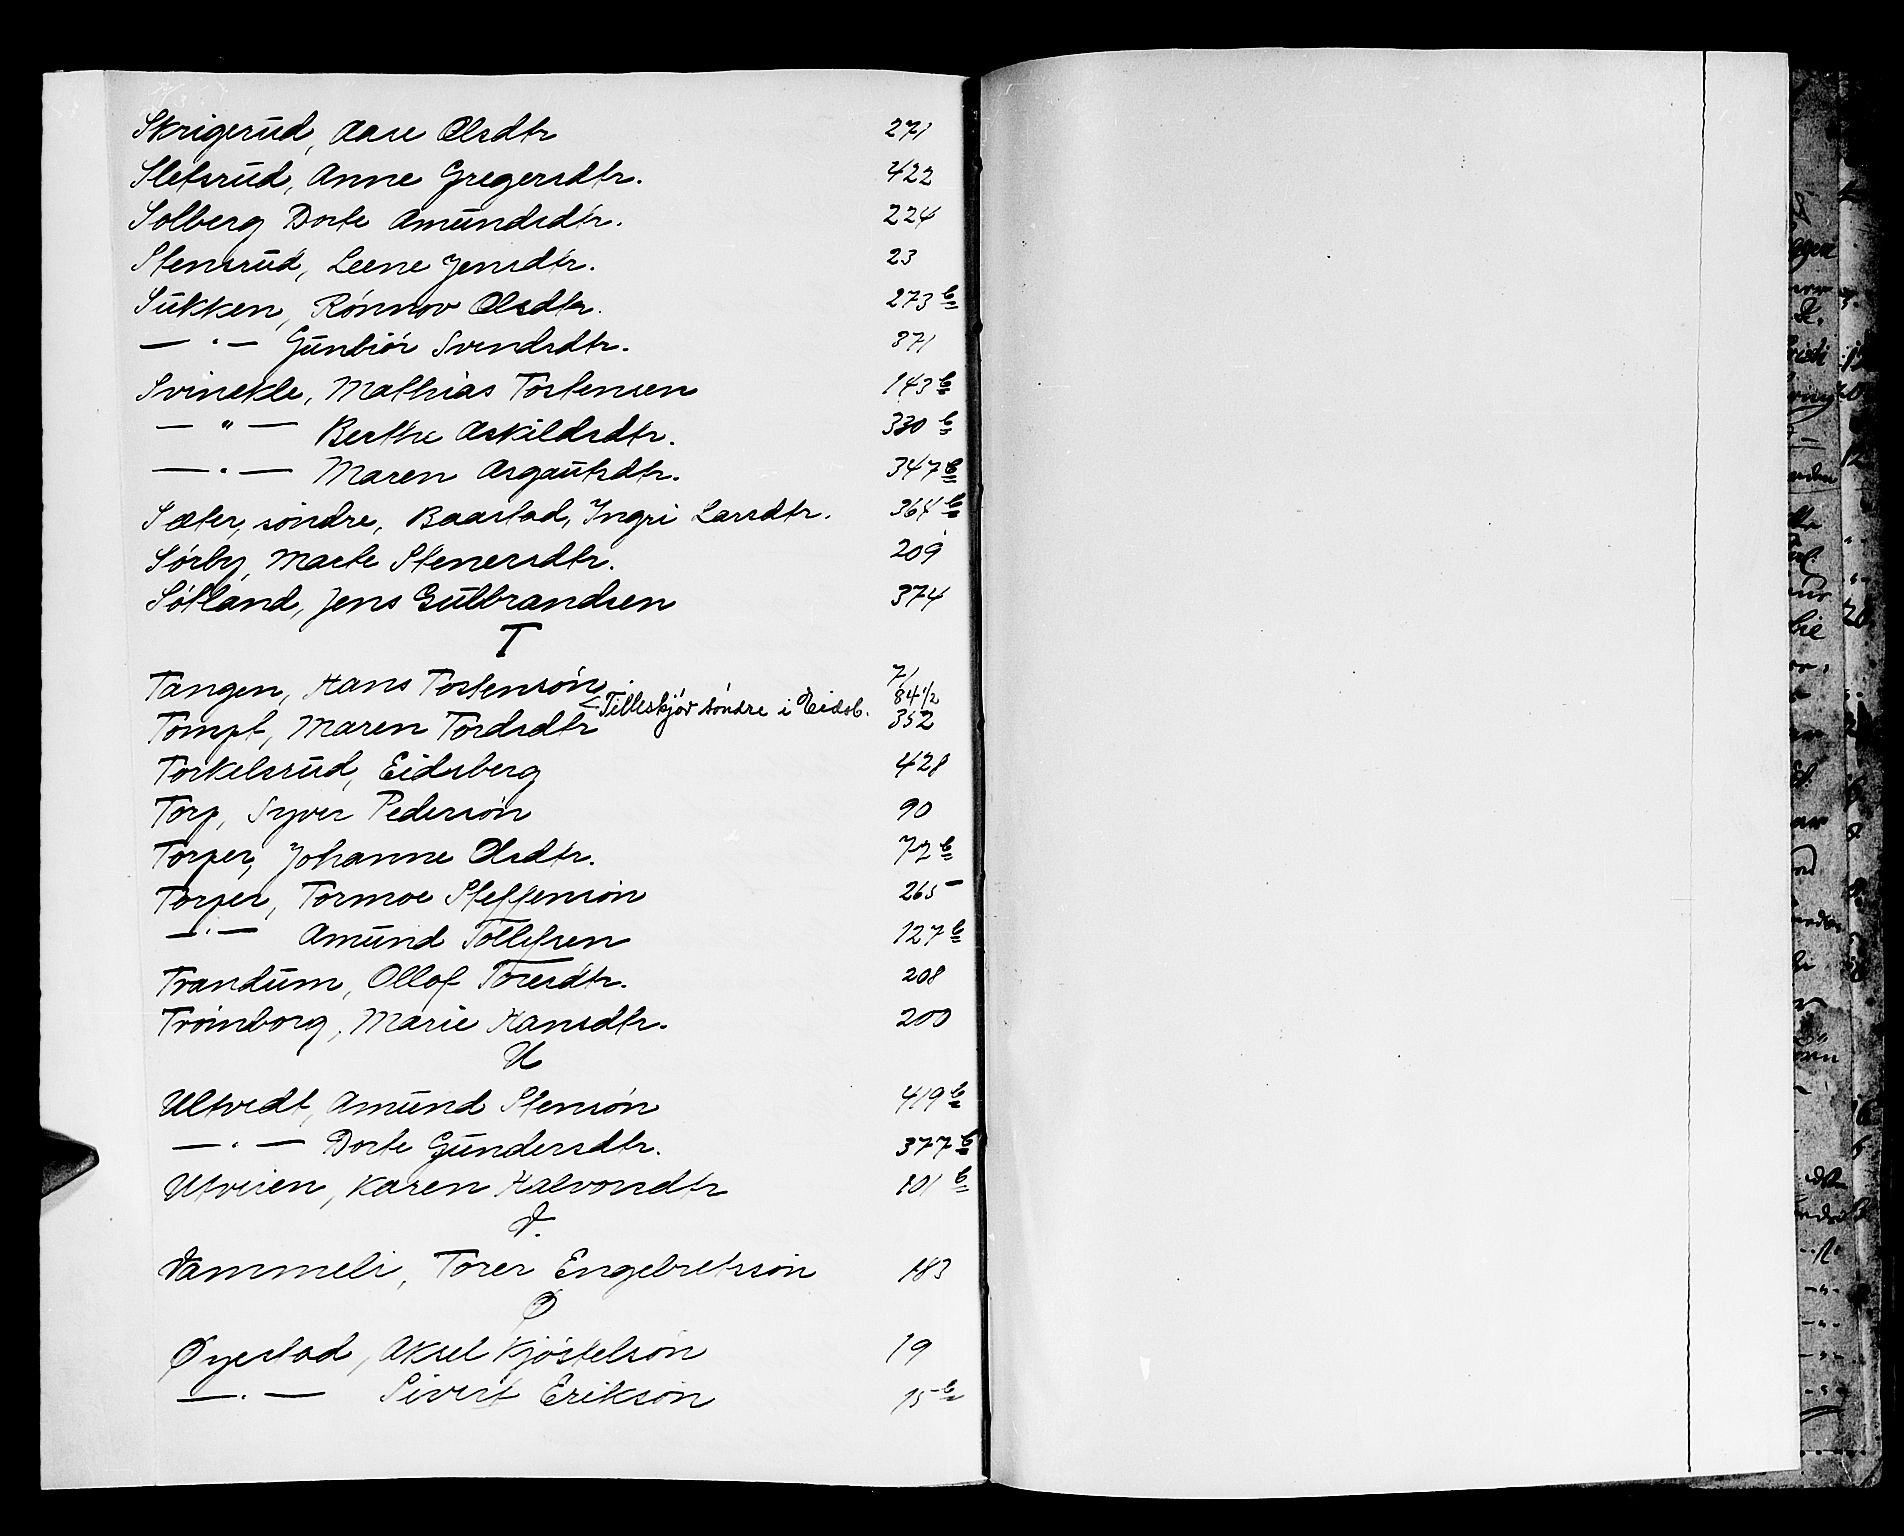 Skrigerud, Aase Olsdtr 271
Sletsrud, Anne Gregersdtr. 422
Solberg Dorte Amundsdtr. 224
Stensrud, Leene Jensdtr. 23
Sukken, Rønnov Olsdtr. 273 b
— " — Gunbiør Svendsdtr. 371
Svinekle, Mathias Tostensen 143 b
— " — Berthe Askildsdtr. 330 b
— " — Maren Asgautsdtr. 347 b
Sæter, søndre, Baastad, Ingri Larsdtr. 364 b
Sørby, Marte Stenersdtr. 209
Søtland, Jens Gulbrandsen 374
T
Tangen, Hans Tostensøn. 71
<Tilleskjør søndre i Eidsb. 84 1/2
Tompt, Maren Tordsdtr 352
Torkelsrud, Eidsberg 428
Torp, Syver Pedersøn 90
Torper, Johanne Olsdtr. 72 b
Torper, Tormoe Steffensøn 265
— " — Amund Tollefsen 127 b
Trandum, Ollof Toresdtr. 208
Trømborg, Marie Hansdtr. 200
U
Ultvedt, Amund Stensøn 419 b
— " — Dorte Gundersdtr. 377 b
Utveien, Karen Halvorsdtr 101 b
V.
Vammeli, Torer Engebretssøn 183
Ø
Øyestad, Aksel Kjøstelsøn 19
— " — Sivert Eriksøn 15 b